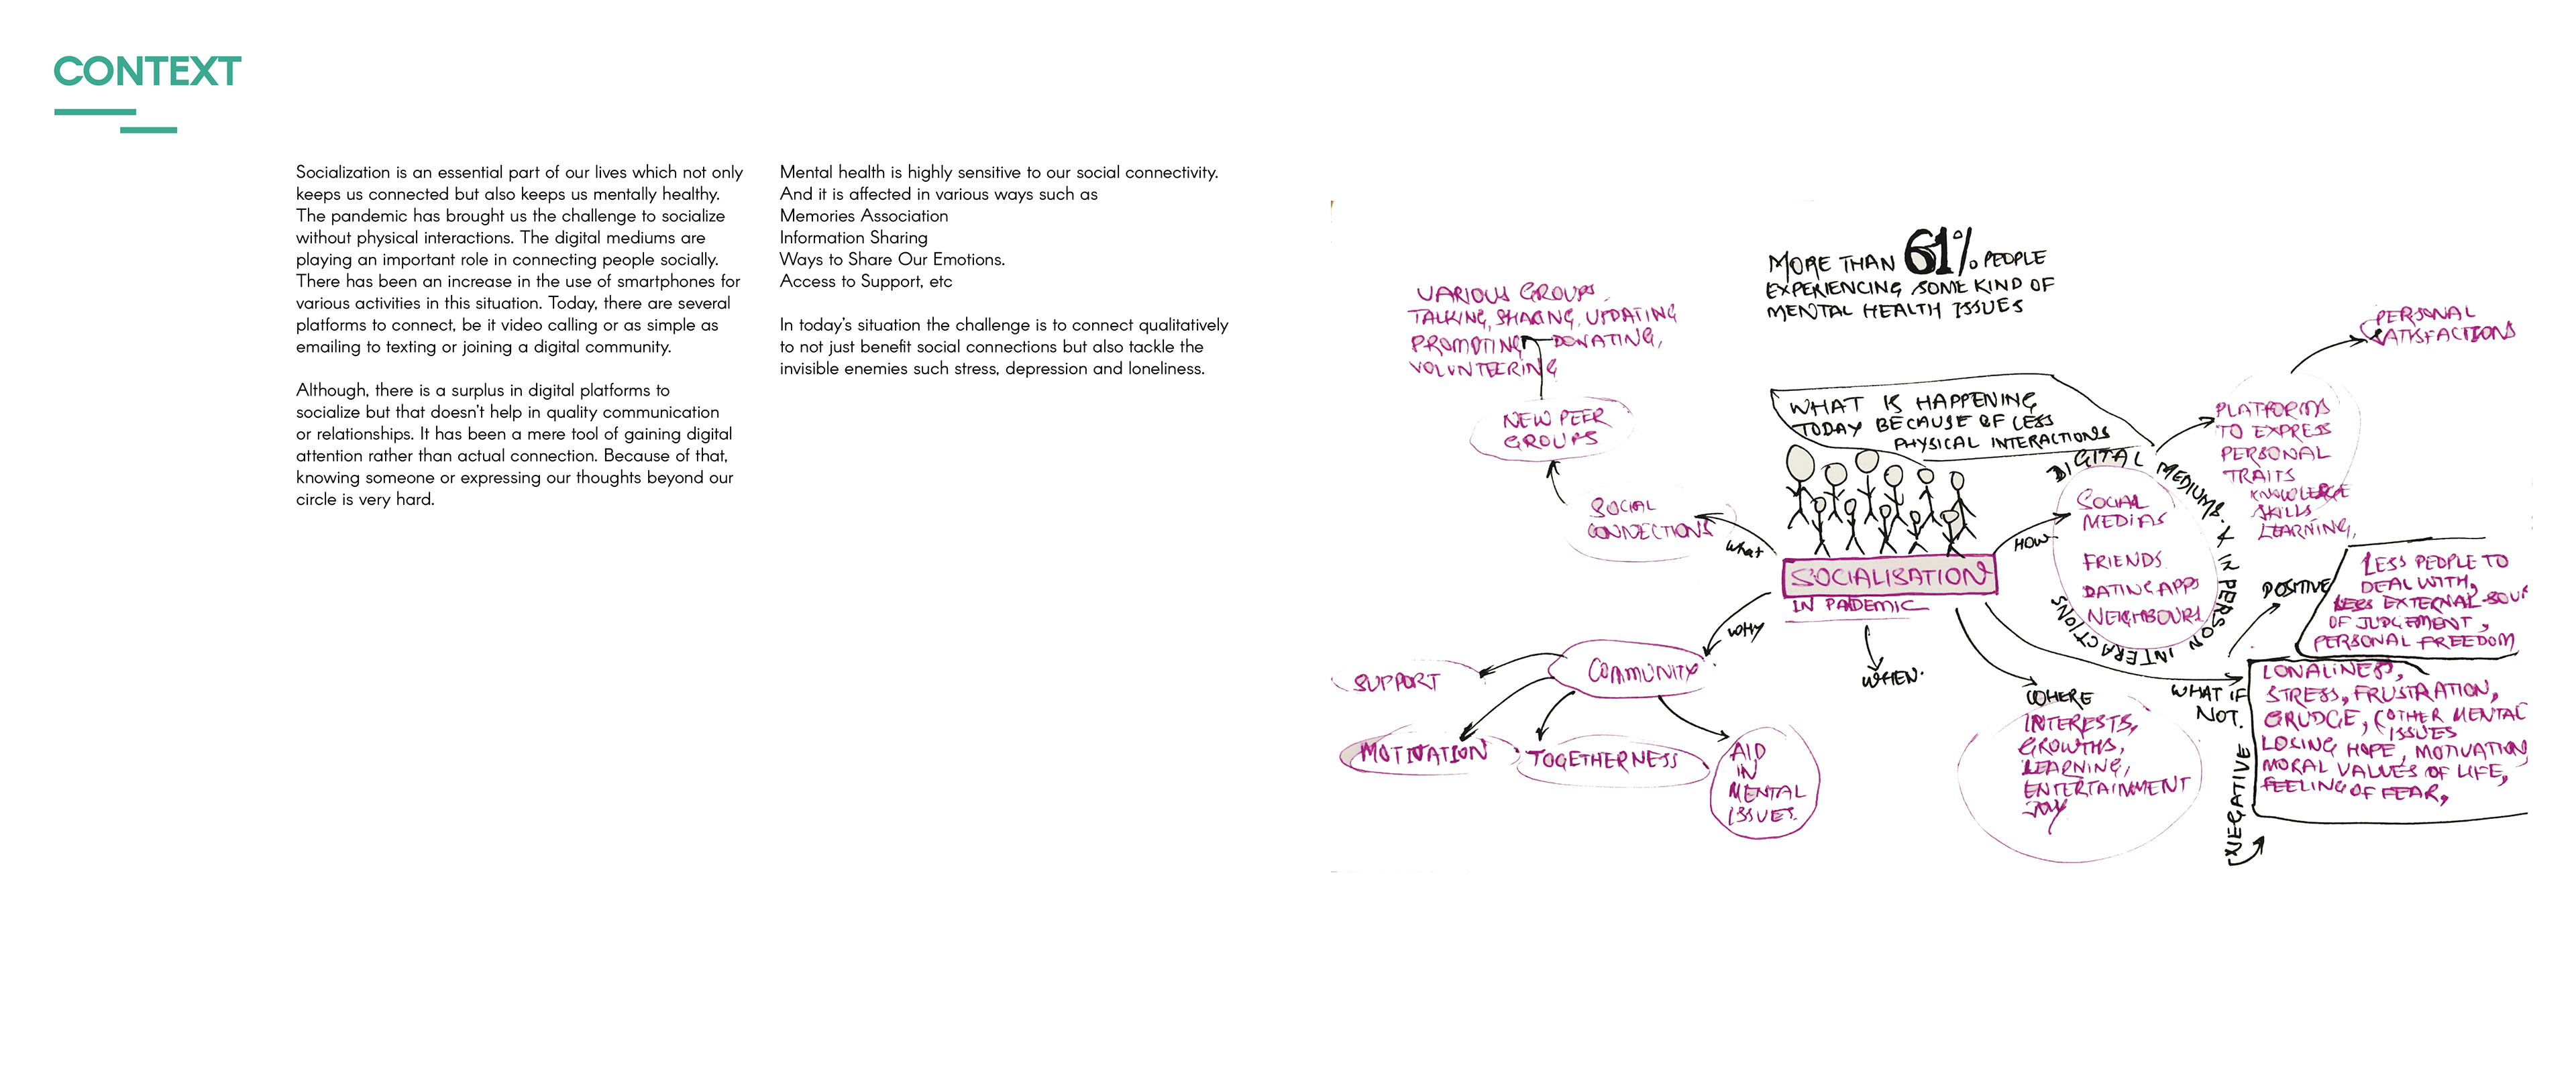 CONTEXT
Socialization is an essential part of our lives which not only
keeps us connected but also keeps us mentally healthy.
The pandemic has brought us the challenge to socialize
without physical interactions. The digital mediums are
playing an important role in connecting people socially.
There has been an increase in the use of smartphones for
various activities in this situation. Today, there are several
platforms to connect, be it video calling or as simple as
emailing to texting or joining a digital community.
Although, there is a surplus in digital platforms to
socialize but that doesn't help in quality communication
or relationships. It has been a mere tool of gaining digital
attention rather than actual connection. Because of that,
knowing someone or expressing our thoughts beyond our
circle is very hard.
Mental health is highly sensitive to our social connectivity.
And it is affected in various ways such as
Memories Association
Information Sharing
Ways to Share Our Emotions.
Access to Support, etc
In today's situation the challenge is to connect qualitatively
to not just benefit social connections but also tackle the
invisible enemies such stress, depression and loneliness.
MORE THAN 61% PEOPLE
EXPERIENCING SOME KIND OF
MENTAL HEALTH ISSUES
VARIOUS GROUPS,
TALKING, SHARING, UPDATING
PROMOTING DONATING,
VOLUNTEERING
NEW PEER
GROUPS
SOCIAL
CONNECTIONS
What
WHAT IS HAPPENING
TODAY BECAUSE OF LESS
PHYSICAL INTERACTIONS
SOCIALISATION
IN PADEMIC
HOW
DIGITAL MEDIUMS. X IN PERSON INTERACTIONS
SOCIAL
MEDIAS
FRIENDS
DATING APPS
NEIGHBOURS
PLATFORMS
TO EXPRESS
PERSONAL
TRAITS
KNOWLEDGE
SKILLS
LEARNING,
PERSONAL
SATISFACTIONS
POSITIVE
LESS PEOPLE TO
DEAL WITH,
LESS EXTERNAL
OF JUDGEMENT,
PERSONAL FREEDOM
WHY
COMMUNITY
SUPPORT
MOTIVATION
TOGETHERNESS
AID
IN
MENTAL
ISSUES.
WHEN.
WHERE
INTERESTS,
GROWTHS,
LEARNING,
ENTERTAINMENT
JOY
WHAT IF
NOT.
NEGATIVE
LONALINESS,
STRESS, FRUSTRATION,
GRUDGE, (OTHER MENTAL
ISSUES
LOSING HOPE, MOTIVATION
MORAL VALUES OF LIFE,
FEELING OF FEAR,